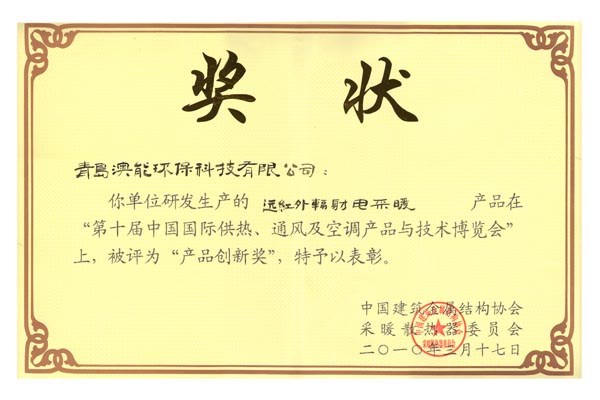 奖状
青岛澳能环保科技有限公司：
你单位研发生产的 远红外辐射电采暖 产品在
“第十届中国国际供热、通风及空调产品与技术博览会”
上，被评为“产品创新奖”，特予以表彰。
中国建筑金属结构协会
采暖散热器委员会
二〇一〇年三月十七日